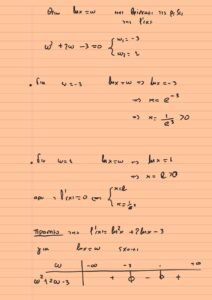 Θέτω lnx = ω και βρίσκουμε τις ρίζες
της f'(x)
ω² + 2ω - 3 = 0 { ω₁ = -3
ω₂ = 1
• Για ω = -3 lnx = ω ⇔ lnx = -3
⇔ x = e⁻³
⇔ x = 1/e³ > 0
• Για ω = 1 lnx = ω ⇔ lnx = 1
⇔ x = e > 0
f'(x) = 0 ⇔ { x = e
x = 1/e³
Πρόσημο της f'(x) = ln²x + 2lnx - 3
για lnx = ω
ω -∞ -3 1 +∞
ω² + 2ω - 3 + 0 - 0 +